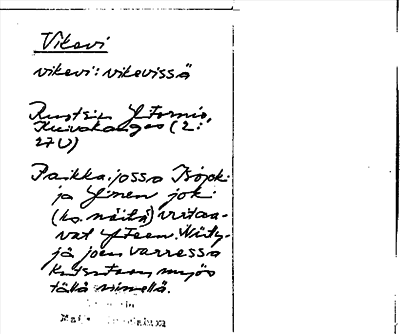 Vikevi
vikevi: vikevissä
Ruotsin Ytornio,
Kuivakangas (2:
27U)
Paikka, jossa Isojoki
ja Ymen joki
(ks. näitä) virtaa-
vat yteen. Niity-
jä joen varressa
kutsutaan myös
tällä nimellä.